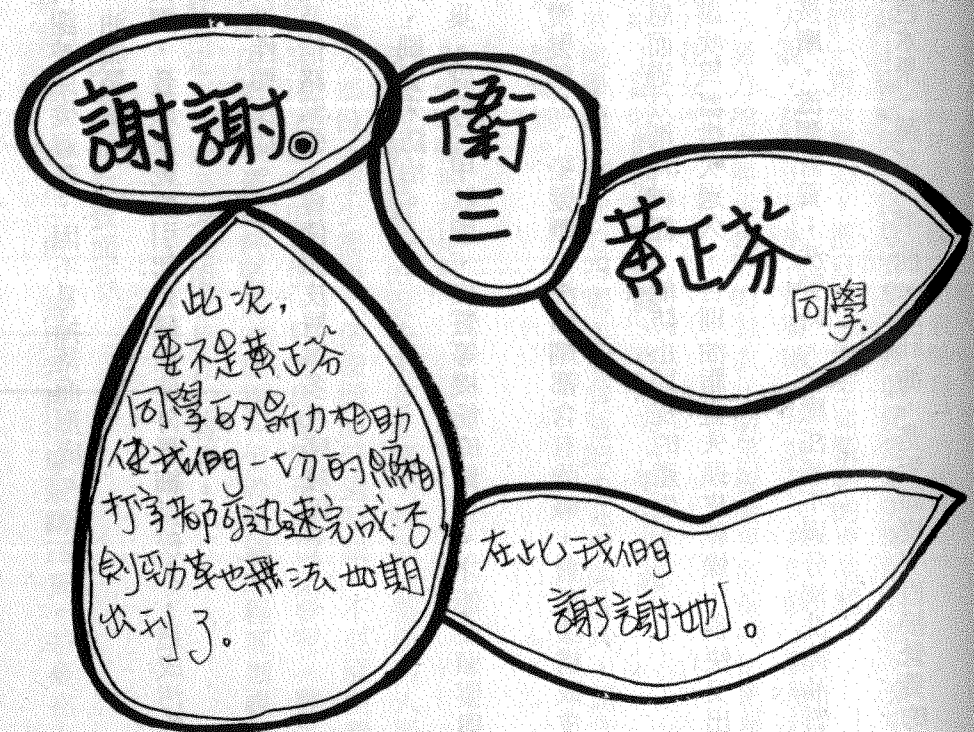 謝謝。
衛
三
黃正芬
同學
此次,
要不是黃正芬
同學的鼎力相助
使我們一切的照相
打字都可迅速完成.否
則勁草也無法如期
出刊了。
在此我們
謝謝她。